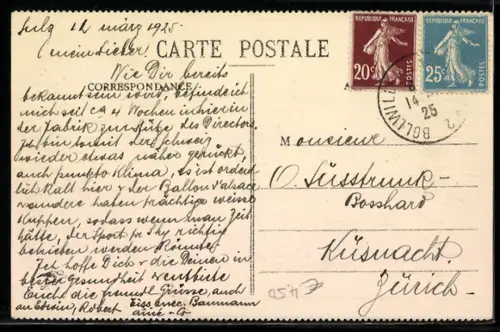 Sulz 12 märz 1925.
Mein Lieber!
CARTE POSTALE
CORRESPONDANCE
Wie Dir bereits
bekannt sein wird, befinde ich
mich seit ca 4 Wochen in hier in
der Fabrik zur Stütze des Directors.
Ich bin somit der Schweiz
wieder etwas näher gerückt,
auch punkto Klima, es ist ordent
lich kalt hier & der Ballon d'alsace &
andere haben prächtige weisse
Kuppen, sodass wenn man Zeit
hätte, der Sport pr. Sky richtig
betrieben werden könnte.
Ich hoffe Dich & die Deinen in
bester Gesundheit & entbiete
Euch die freundl. Grüsse, auch
an Edwin, Robert
Baumann
REPUBLIQUE FRANÇAISE
20c
POSTES
REPUBLIQUE FRANÇAISE
25c
POSTES
BOLLWILLER
14
25
Monsieur
O. Süsstrunk-
Bosshard
Küsnacht.
Zürich.